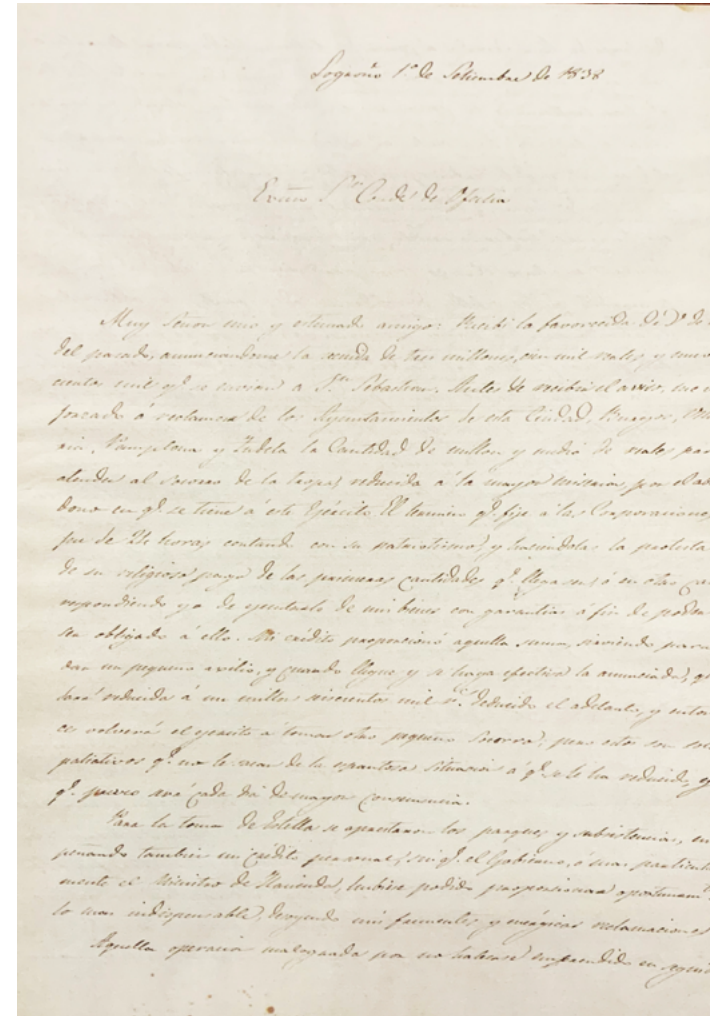 Logroño 1.º de Setiembre de 1838
Exmo Sr Conde de Ofalia
Muy Señor mio y estimado amigo: Recibi la favorecida de V. de
del pasado, anunciandome la remesa de tres millones, cien mil reales, y
cuenta mil q.e se envian a S.n Sebastian. Antes de recibir el aviso, me
forzado á reclamar de los Ayuntamientos de esta Ciudad, Burgos,
ria, Pamplona y Tudela la Cantidad de millon y medio de reales para
atender al socorro de la tropa, reducida á la mayor miseria por el
dono en q.e se tiene á este Ejército. El termino q.e fije á las Corporaciones,
fue de 24 horas contando con su patriotismo, y haciendoles la protesta
de su religioso pago de las primeras cantidades q.e llegasen, ó en otro
respondiendo yo de ejecutarlo de mis bienes con garantias á fin de poder
ser obligado á ello. Mi crédito proporcionó aquella suma, sirviendo para
dar un pequeño ausilio, y cuando llegue y se haga efectiva la anunciada,
dará reducida á un millon seiscientos mil r.s deducido el adelanto, y
ces volverá el ejercito á tomar otro pequeño Socorro; pero estos son
paliativos q.e no le sacan de la espantosa situacion á q.e se le ha reducido, y
q.e parece será cada dia de mayor consecuencia.
Para la toma de Estella se aprontaron los parques y subsistencias,
peñando tambien mi crédito personal, sin q.e el Gobierno, ó mas
mente el Ministro de Hacienda, hubiese podido proporcionar
lo mas indispensable, desoyendo mis frecuentes y enérgicas reclamaciones
Aquella operacion malograda por no haberse emprendido en